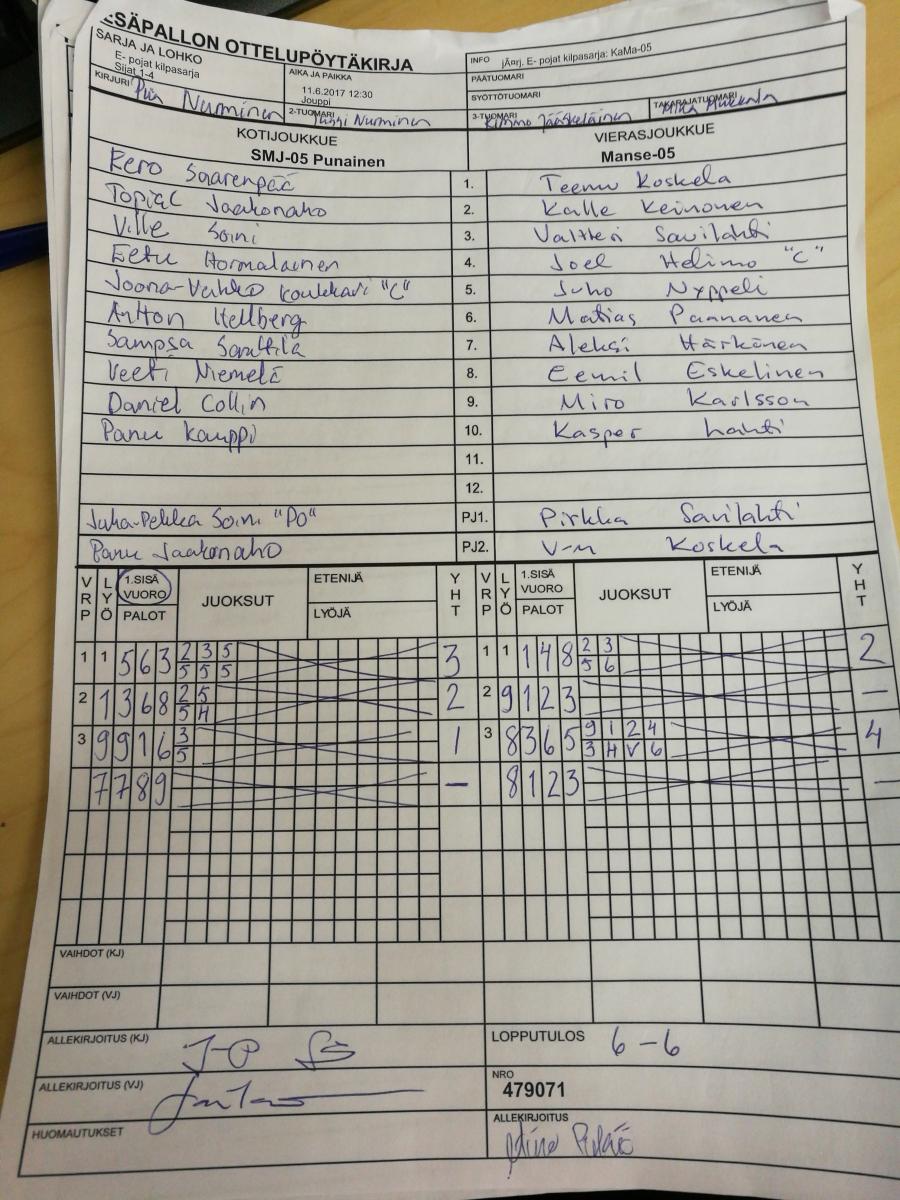 ESÄPALLON OTTELUPÖYTÄKIRJA
SARJA JA LOHKO
E- pojat kilpasarja
Sijat 1-4
AIKA JA PAIKKA
11.6.2017 12:30
Jouppi
INFO järj. E- pojat kilpasarja: KaMa-05
PÄÄTUOMARI
SYÖTTÖTUOMARI
KIRJURI Pia Nurminen
2-TUOMARI Jussi Nurminen
3-TUOMARI Kimmo Jääskeläinen
TAKARAJATUOMARI Mika
KOTIJOUKKUE
SMJ-05 Punainen
VIERASJOUKKUE
Manse-05
Eero Saarenpää 1. Teemu Koskela
Topias Jaakonaho 2. Kalle Keinonen
Ville Soini 3. Valtteri Savilahti
Eetu Hormalainen 4. Joel Helimo "C"
Joona-Veikko Koukkari "C" 5. Juho Nyppeli
Antton Hellberg 6. Matias Paananen
Sampsa 7. Aleksi Härkönen
Veeti Niemelä 8. Eemil Eskelinen
Daniel Collin 9. Miro Karlsson
Panu Kauppi 10. Kasper Lahti
11.
12.
Juha-Pekka Soini "PO" PJ1. Pirkka Savilahti
Panu Jaakonaho PJ2. V-M Koskela
VRP LYÖ 1.SISÄ VUORO PALOT JUOKSUT ETENIJÄ LYÖJÄ YHT VRP LYÖ 1.SISÄ VUORO PALOT JUOKSUT ETENIJÄ LYÖJÄ YHT
1 1 5 6 3 2 3 5 3 1 1 1 4 8 2 3 2
5 5 5 5 6
2 1 3 6 8 2 5 2 2 9 1 2 3 –
5 4
3 9 9 1 6 3 1 3 8 3 6 5 9 1 2 4 4
5 3 4 V 6
7 7 8 9 – 8 1 2 3 –
VAIHDOT (KJ)
VAIHDOT (VJ)
ALLEKIRJOITUS (KJ) J-P
LOPPUTULOS 6 – 6
ALLEKIRJOITUS (VJ)
NRO
479071
HUOMAUTUKSET
ALLEKIRJOITUS